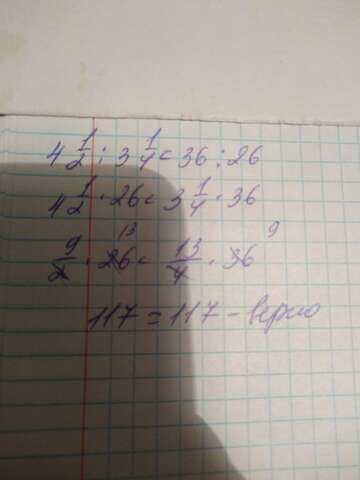 4 1/2 : 3 1/4 = 36 : 26
4 1/2 · 26 = 3 1/4 · 36
9/2 · 26 13 = 13/4 · 36 9
117 = 117 - верно